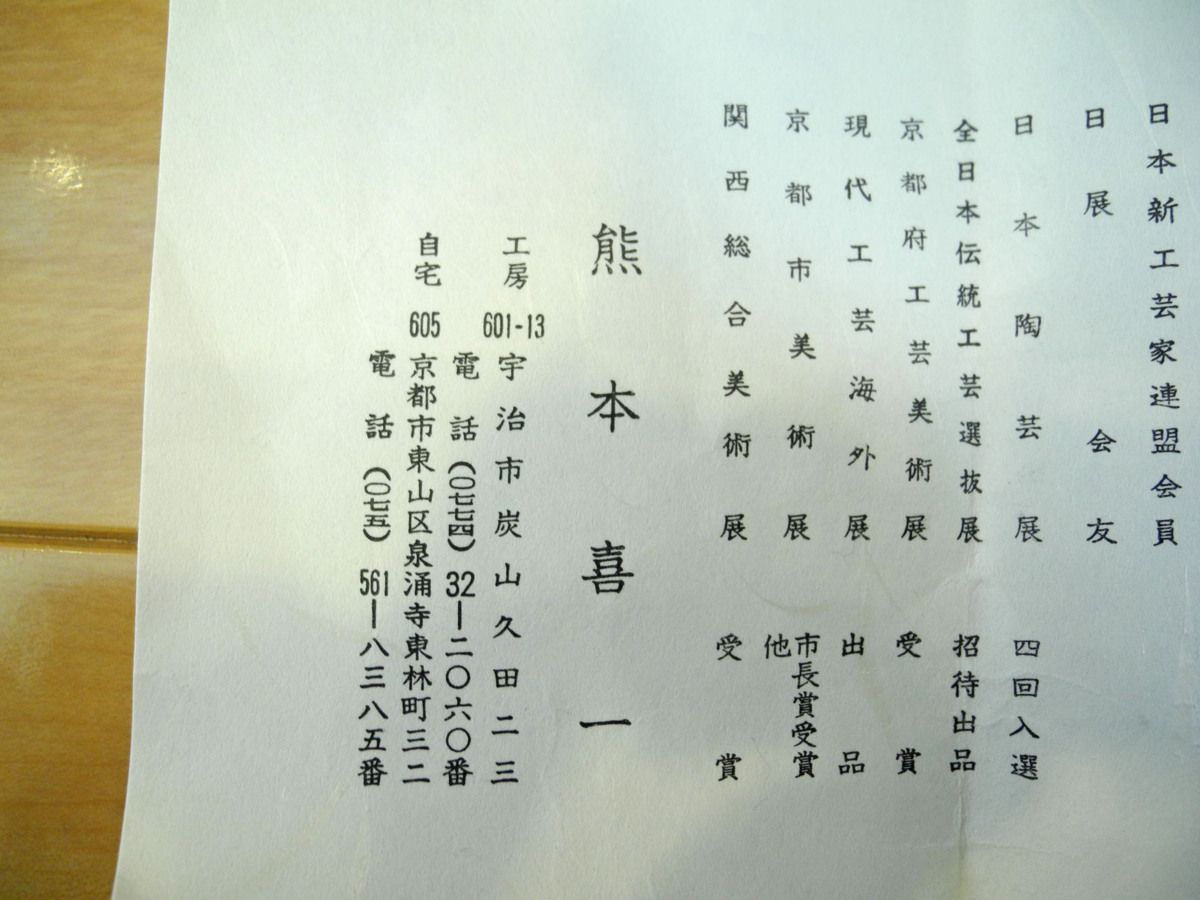 日本新工芸家連盟会員
日展会友
日本陶芸展 四回入選
全日本伝統工芸選抜展 招待出品
京都府工芸美術展 受賞
現代工芸海外展 出品
京都市美術展 市長賞受賞 他
関西総合美術展 受賞
熊本喜一
工房 601-13 宇治市炭山久田二三
電話(〇七七四)32―二〇六〇番
自宅 605 京都市東山区泉涌寺東林町三二
電話(〇七五)561―八三八五番